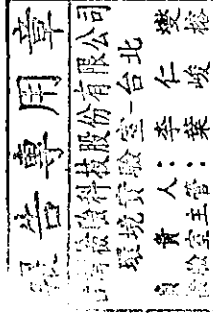 報告專用章
檢驗科技股份有限公司
環境實驗室-台北
負責人：李仁燮
檢驗室主管：葉峻榕